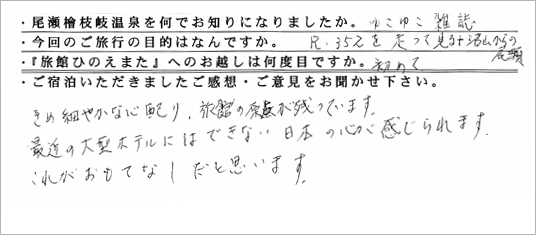 ・尾瀬檜枝岐温泉を何でお知りになりましたか。 ゆこゆこ 雑誌
・今回のご旅行の目的はなんですか。 R.352を走って見たかったからの尾瀬
・『旅館ひのえまた』へのお越しは何度目ですか。 初めて
・ご宿泊いただきましたご感想・ご意見をお聞かせ下さい。
きめ細やかな心配り、旅館の原点が残っています。
最近の大型ホテルにはできない日本の心が感じられます。
これがおもてなしだと思います。